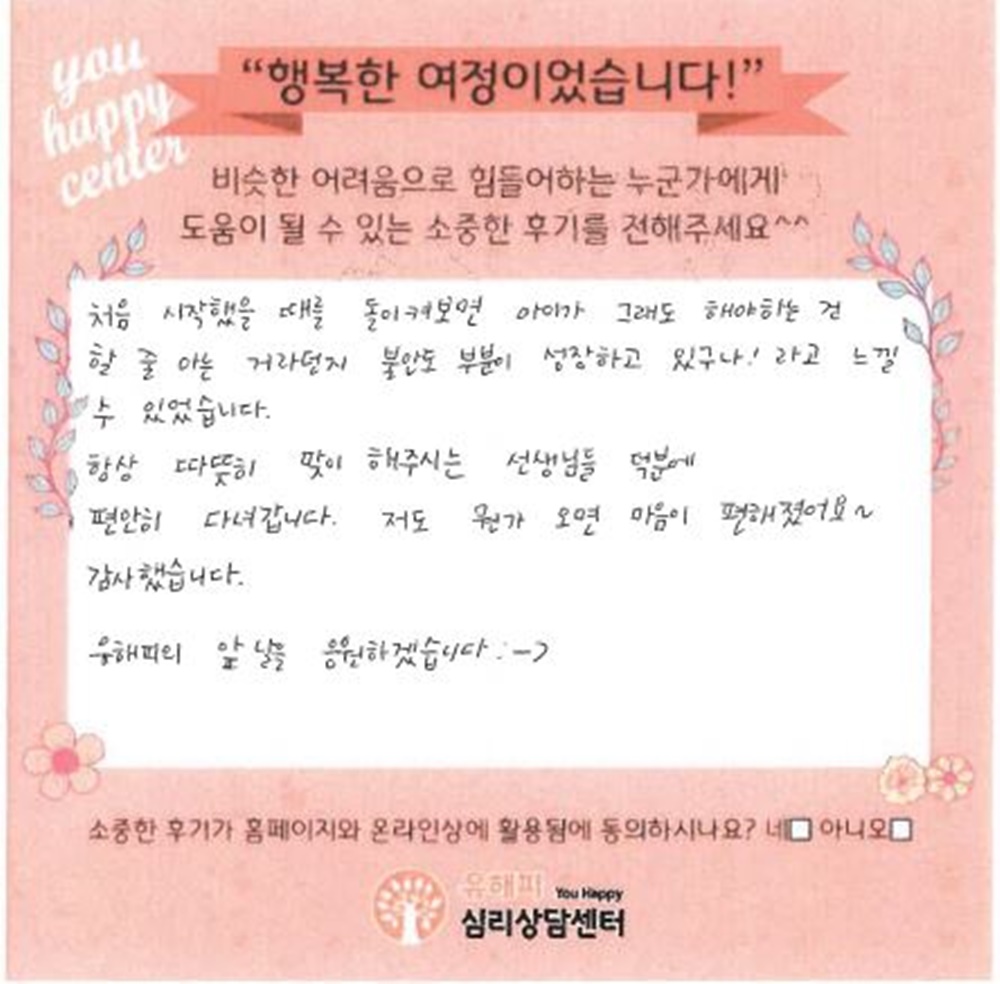 you
happy
center
“행복한 여정이었습니다!”
비슷한 어려움으로 힘들어하는 누군가에게
도움이 될 수 있는 소중한 후기를 전해주세요^^
처음 시작했을 때를 돌이켜보면 아이가 그래도 해야하는 건
할 줄 아는 거라던지 불안도 부분이 성장하고 있구나! 라고 느낄
수 있었습니다.
항상 따뜻히 맞이 해주시는 선생님들 덕분에
편안히 다녀갑니다. 저도 뭔가 오면 마음이 편해졌어요~
감사했습니다.
유해피의 앞날을 응원하겠습니다 :->
소중한 후기가 홈페이지와 온라인상에 활용됨에 동의하시나요? 네□ 아니오□
유해피 You Happy
심리상담센터